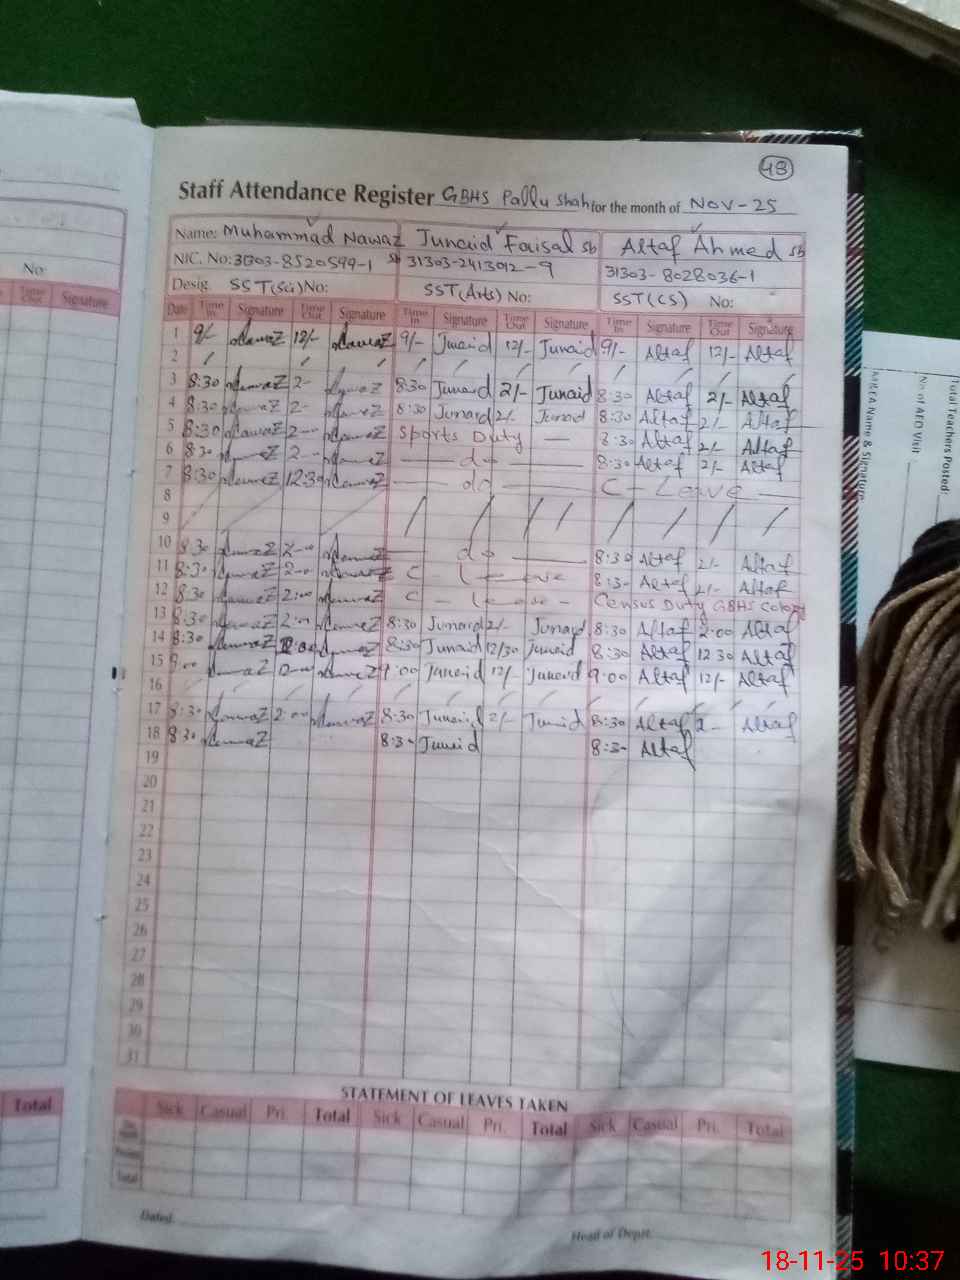 48
Staff Attendance Register GBHS Pallu Shah for the month of Nov-25
Name: Muhammad Nawaz sb Junaid Faisal sb Altaf Ahmed sb
NIC. No: 31303-8520599-1 31303-2413012-9 31303-8028036-1
Desig. SST(Sci) No: SST(Arts) No: SST(CS) No:
Date Time In Signature Time Out Signature Time In Signature Time Out Signature Time In Signature Time Out Signature
1 9/- Nawaz 12/- Nawaz 9/- Junaid 12/- Junaid 9/- Altaf 12/- Altaf
2
3 8:30 Nawaz 2- Nawaz 8:30 Junaid 2/- Junaid 8:30 Altaf 2/- Altaf
4 8:30 Nawaz 2- Nawaz 8:30 Junaid 2/- Junaid 8:30 Altaf 2/- Altaf
5 8:30 Nawaz 2- Nawaz Sports Duty 8:30 Altaf 2/- Altaf
6 8:30 Nawaz 2- Nawaz do 8:30 Altaf 2/- Altaf
7 8:30 Nawaz 12:30 Nawaz do C-Leave
8
9
10 8:30 Nawaz 2-00 Nawaz do 8:30 Altaf 2/- Altaf
11 8:30 Nawaz 2-00 Nawaz C-Leave 8:3- Altaf 2/- Altaf
12 8:30 Nawaz 2:00 Nawaz C-Leave- Census Duty GBHS
13 8:30 Nawaz 2:00 Nawaz 8:30 Junaid 2/- Junaid 8:30 Altaf 2:00 Altaf
14 8:30 Nawaz Nawaz 8:30 Junaid 12/30 Junaid 8:30 Altaf 12 30 Altaf
15 9:00 Nawaz 12-00 Nawaz 9:00 Junaid 12/- Junaid 9:00 Altaf 12/- Altaf
16
17 8:30 Nawaz 2:00 Nawaz 8:30 Junaid 2/- Junaid 8:30 Altaf 2- Altaf
18 8:30 Nawaz 8:3- Junaid 8:3- Altaf
19
20
21
22
23
24
25
26
27
28
29
30
31
STATEMENT OF LEAVES TAKEN
Sick Casual Pri. Total Sick Casual Pri. Total Sick Casual Pri. Total
Total
Dated: Head of Deptt.
No:
Time Out Signature
Total
Total Teachers Posted:
No. of AEO Visit
MEA Name & Signature
18-11-25 10:37